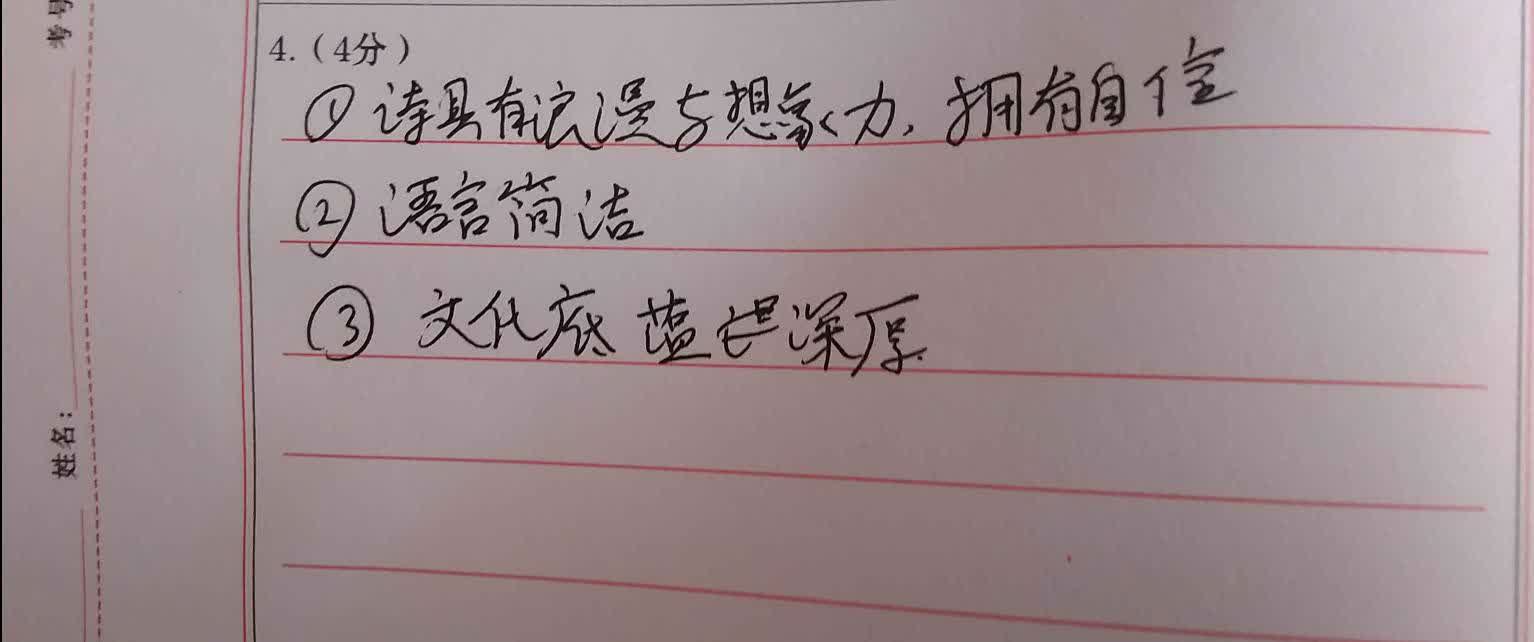 考号
姓名：
4.（4分）
①诗具有浪漫与想象力，拥有自信
②语言简洁
③文化底蕴深厚.